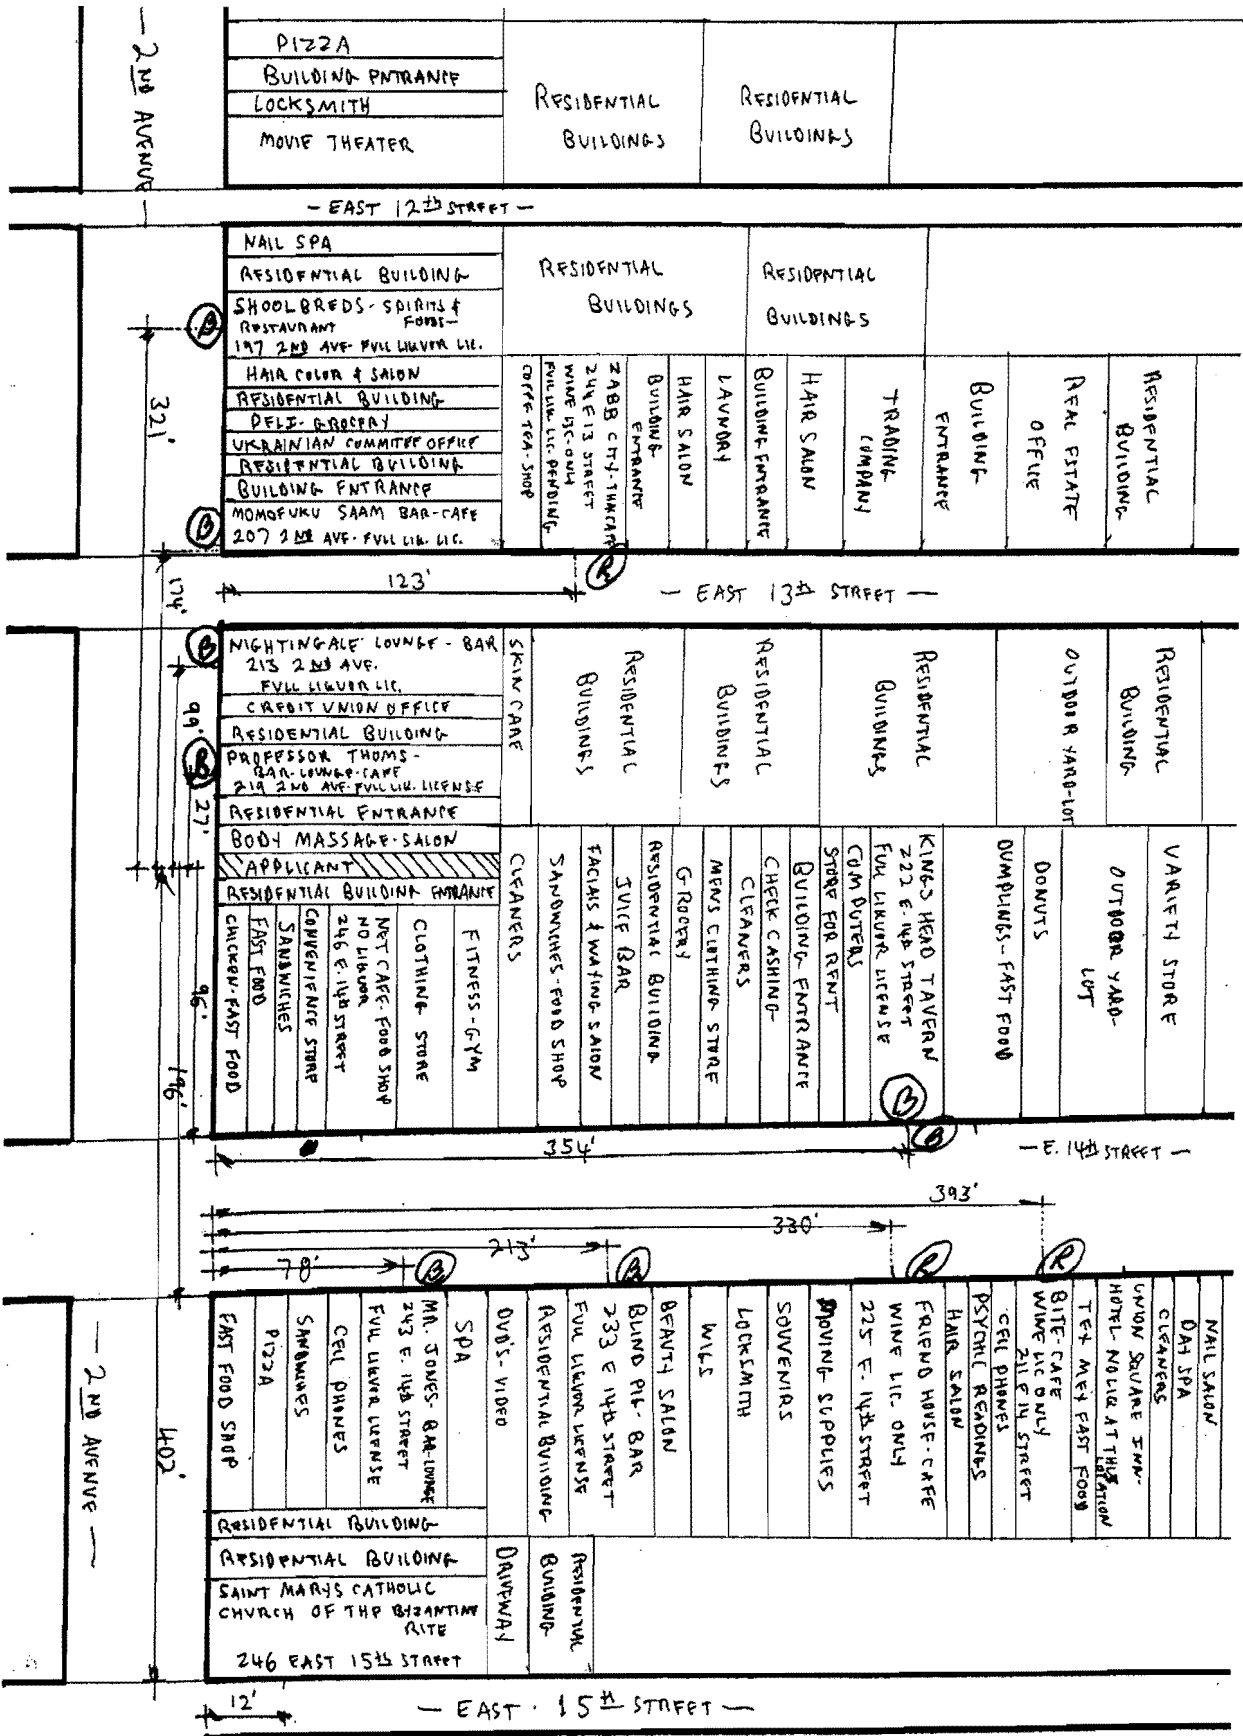 — 2ND AVENUE —
PIZZA
BUILDING ENTRANCE
LOCKSMITH
MOVIE THEATER
RESIDENTIAL
BUILDINGS
RESIDENTIAL
BUILDINGS
— EAST 12th STREET —
NAIL SPA
RESIDENTIAL BUILDING
SHOOLBREDS - SPIRITS &
RESTAURANT FOODS —
197 2ND AVE - FULL LIQUOR LIC.
HAIR COLOR & SALON
RESIDENTIAL BUILDING
DELI - GROCERY
UKRAINIAN COMMITEE OFFICE
RESIDENTIAL BUILDING
BUILDING ENTRANCE
MOMOFUKU SAAM BAR - CAFE
207 2ND AVE - FULL LIQ. LIC.
RESIDENTIAL
BUILDINGS
RESIDENTIAL
BUILDINGS
COFFE TEA - SHOP
ZABB CITY - THAI CAFE
244 E 13 STREET
WINE LIC - ONLY
FULL LIQ. LIC. PENDING
BUILDING
ENTRANCE
HAIR SALON
LAUNDRY
BUILDING ENTRANCE
HAIR SALON
TRADING
COMPANY
BUILDING
ENTRANCE
REAL ESTATE
OFFICE
RESIDENTIAL
BUILDING
B
321'
B
R
123'
— EAST 13th STREET —
174'
B
99'
B
27'
NIGHTINGALE LOUNGE - BAR
213 2ND AVE.
FULL LIQUOR LIC.
CREDIT UNION OFFICE
RESIDENTIAL BUILDING
PROFESSOR THOMS -
BAR - LOUNGE - CAFE
219 2ND AVE - FULL LIQ. LICENSE
RESIDENTIAL ENTRANCE
BODY MASSAGE - SALON
APPLICANT
RESIDENTIAL BUILDING ENTRANCE
SKIN CARE
RESIDENTIAL
BUILDINGS
RESIDENTIAL
BUILDINGS
RESIDENTIAL
BUILDINGS
OUTDOOR YARD - LOT
RESIDENTIAL
BUILDING
CHICKEN - FAST FOOD
FAST FOOD
SANDWICHES
CONVENIENCE STORE
NET CAFE - FOOD SHOP
NO LIQUOR
246 E. 14th STREET
CLOTHING STORE
FITNESS - GYM
CLEANERS
SANDWICHES - FOOD SHOP
FACIALS & WAXING SALON
JUICE BAR
RESIDENTIAL BUILDING
GROCERY
MENS CLOTHING STORE
CLEANERS
CHECK CASHING -
BUILDING - ENTRANCE
STORE FOR RENT
COMPUTERS
KINGS HEAD TAVERN
222 E. 14th STREET
FULL LIQUOR LICENSE
DUMPLINGS - FAST FOOD
DONUTS
OUTDOOR YARD -
LOT
VARIETY STORE
96'
196'
B
B
354'
— E. 14th STREET —
393'
330'
213'
78'
B
B
R
R
FAST FOOD SHOP
PIZZA
SANDWICHES
CELL PHONES
MR. JONES - BAR - LOUNGE
243 E. 14th STREET
FULL LIQUOR LICENSE
SPA
DVD'S - VIDEO
RESIDENTIAL BUILDING
BLIND PIG - BAR
233 E 14th STREET
FULL LIQUOR LICENSE
BEAUTY SALON
WIGS
LOCKSMITH
SOUVENIRS
MOVING SUPPLIES
FRIEND HOUSE - CAFE
WINE LIC. ONLY
225 E. 14th STREET
HAIR SALON
PSYCHIC READINGS
CELL PHONES
BITE - CAFE
WINE LIC ONLY
211 E 14 STREET
TEX MEX FAST FOOD
UNION SQUARE INN -
HOTEL - NO LIQ AT THIS
LOCATION
CLEANERS
DAY SPA
NAIL SALON
RESIDENTIAL BUILDING
RESIDENTIAL BUILDING
SAINT MARYS CATHOLIC
CHURCH OF THE BYZANTINE
RITE
246 EAST 15th STREET
DRIVEWAY
RESIDENTIAL
BUILDING
— 2ND AVENUE —
402'
12'
— EAST · 15th STREET —